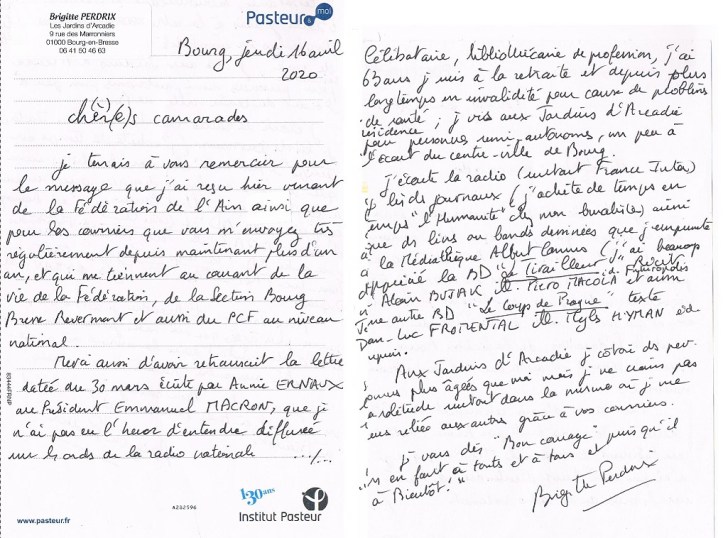 Brigitte PERDRIX
Les Jardins d'Arcadie
9 rue des Marronniers
01000 Bourg-en-Bresse
06 41 50 46 63
Pasteur & moi
Bourg, jeudi 16 avril
2020
chèr(i)(e)s camarades
je tenais à vous remercier pour
le message que j'ai reçu hier venant
de la Fédération de l'Ain ainsi que
pour les courriers que vous m'envoyez très
régulièrement depuis maintenant plus d'un
an, et qui me tiennent au courant de la
vie de la Fédération, de la Section Bourg
Bresse Revermont et aussi du PCF au niveau
national.
Merci aussi d'avoir retranscrit la lettre
datée du 30 mars écrite par Annie ERNAUX
au Président Emmanuel MACRON, que je
n'ai pas eu l'heur d'entendre diffusée
sur les ondes de la radio nationale .../...
A202596
130 ans
Institut Pasteur
www.pasteur.fr
Célibataire, bibliothécaire de profession, j'ai
63 ans je suis à la retraite et depuis plus
longtemps en invalidité pour cause de problèmes
de santé ; je vis aux Jardins d'Arcadie
résidence
pour personnes semi-autonomes, un peu à
l'écart du centre-ville de Bourg.
J'écoute la radio (surtout France Inter)
je lis des journaux (j'achète de temps en
temps "l'Humanité" chez mon buraliste) ainsi
que des livres ou bandes dessinées que j'emprunte
à la Médiathèque Albert Camus (j'ai beaucoup
apprécié la BD "Le Tirailleur" Récit
d'Alain BUJAK ill. Piero MACOLA éd. Futuropolis
et aussi
une autre BD "Le Coup de Prague" texte
Jean-Luc FROMENTAL ill. Myles HYMAN éd
Dupuis.
Aux Jardins d'Arcadie je côtoie des per-
sonnes plus âgées que moi mais je ne crains pas
la solitude surtout dans la mesure où je me
sens reliée aux autres grâce à vos courriers.
Je vous dis "Bon courage" puisqu'il
"en faut à toutes et à tous et
à Bientôt !"
Brigitte Perdrix